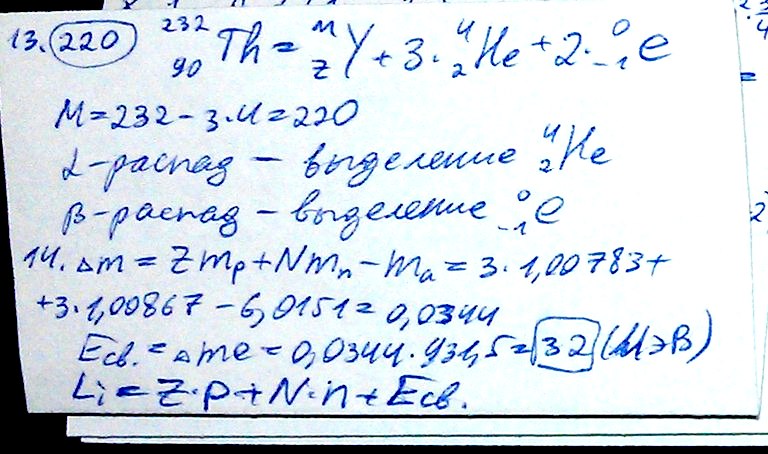 13. 220 ²³²₉₀Th = ᴹ_Z Y + 3·⁴₂He + 2·⁰₋₁e
M = 232 - 3·4 = 220
α-распад - выделение ⁴₂He
β-распад - выделение ⁰₋₁e
14. Δm = Zmₚ + Nmₙ - mₐ = 3·1,00783 +
+ 3·1,00867 - 6,0151 = 0,0344
Eсв. = Δmc = 0,0344·931,5 = 32 (МэВ)
Li = Z·p + N·n + Eсв.